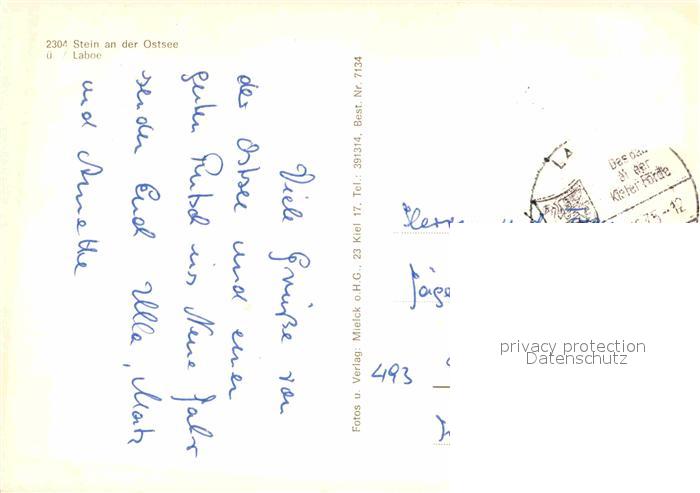 2304 Stein an der Ostsee
ü / Laboe
Viele Grüße von
der Ostsee und einen
guten Rutsch ins Neue Jahr
senden Euch Ulla, Mats
und Annette
Fotos u. Verlag: Mielck o.H.G., 23 Kiel 17, Tel.: 391314, Best. Nr. 7134
LA
Das
an der
Kieler Förde
-12
Herrn
Jäge
493
privacy protection
Datenschutz